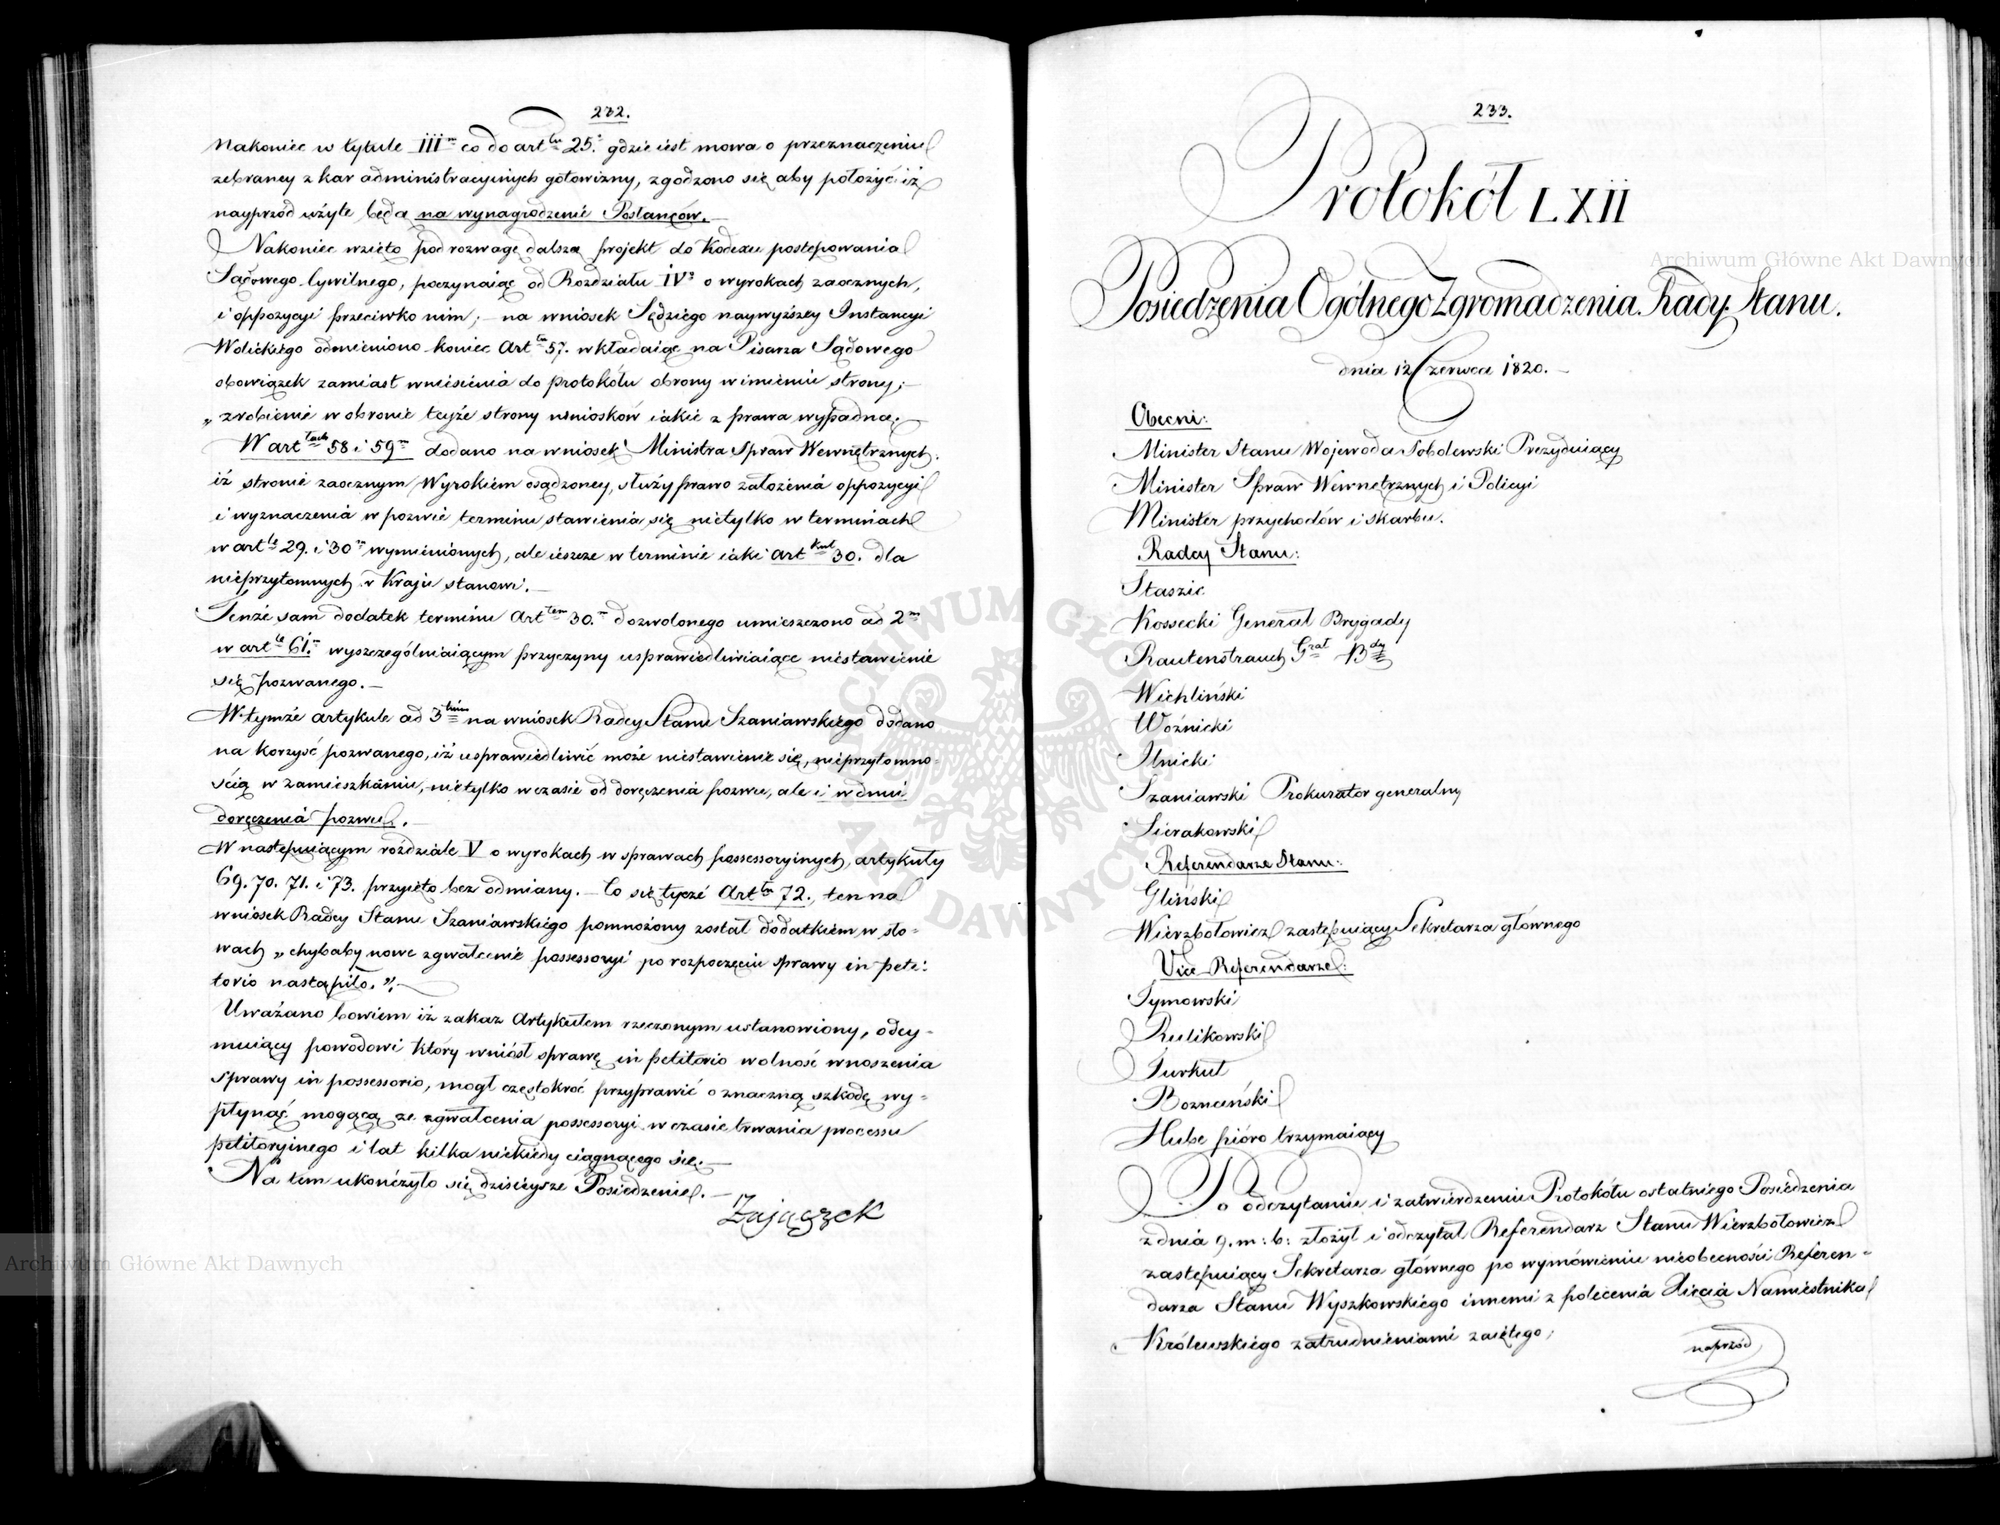 232.
Nakoniec w tytule III^m co do art^łu 25.° gdzie iest mowa o przeznaczeniu
zebraney z kar administracyinych gotowizny, zgodzono się aby położyć iż
nayprzód użyte będą na wynagrodzenie Posłańców.—
Nakoniec wzięto pod rozwagę dalszą projekt do Kodexu postępowania
Sądowego Cywilnego, poczynaiąc od Rozdziału IV° o wyrokach zaocznych,
i oppozycyi przeciwko nim; — na wniosek Sędziego naywyższey Instancyi
Wolickiego odmieniono koniec Art^łu 57. wkładaiąc na Pisarza Sądowego
obowiązek zamiast wniesienia do protokółu obrony w imieniu strony; —
„ zrobienie w obronie teyże strony wniosków iakie z prawa wypadną;
W art^łach 58 i 59^m dodano na wniosek Ministra Spraw Wewnętrznych.
iż stronie zaocznym Wyrokiem osądzoney, służy prawo założenia oppozycyi
i wyznaczenia w pozwie terminu stawienia się nietylko w terminach
w art^le 29. i 30^m wymienionych, ale ieszcze w terminie iaki art^kuł 30. dla
nieprzytomnych w Kraju stanowi.—
Tenże sam dodatek terminu Art^łem 30.^m dozwolonego umieszczono ad 2^m
w art^le 61.^m wyszczególniaiącym przyczyny usprawiedliwiaiące niestawienie
się pozwanego.—
W tymże artykule ad 3^tium na wniosek Radcy Stanu Szaniawskiego dodano
na korzyść pozwanego, iż usprawiedliwić może niestawienie się, nieprzytomno-
ścią w zamieszkaniu, nietylko w czasie od doręczenia pozwu, ale i w dniu
doręczenia pozwu.—
W następuiącym rozdziale V o wyrokach w sprawach possessoryinych, artykuły
69. 70. 71. i 73. przyięto bez odmiany.— Co się tycze Art^łu 72., ten na
wniosek Radcy Stanu Szaniawskiego pomnożony został dodatkiem w sło-
wach „ chybaby nowe zgwałcenie possessoryi po rozpoczęciu sprawy in peti-
torio nastąpiło.”—
Uważano bowiem iż zakaz Artykułem rzeczonym ustanowiony, odey-
muiący powodowi który wniósł sprawę in petitorio wolność wnoszenia
sprawy in possessorio, mógł częstokroć przyprawić o znaczną szkodę wy-
płynąć mogącą ze zgwałcenia possessoryi w czasie trwania processu
petitoryinego i lat kilka niekiedy ciągnącego się.—
Na tem ukończyło się dzisieysze Posiedzenie.—
Zajączek
233.
Protokół LXII
Posiedzenia Ogólnego Zgromadzenia Rady Stanu.
dnia 12 Czerwca 1820.—
Obecni:
Minister Stanu Wojewoda Sobolewski Prezyduiący
Minister Spraw Wewnętrznych i Policyi
Minister przychodów i skarbu.
Radcy Stanu:
Staszic
Kossecki Generał Brygady
Rautenstrauch G^rał B^dy
Wichliński
Woźnicki
Ilnicki
Szaniawski Prokurator generalny
Sierakowski
Referendarze Stanu:
Gliński
Wierzbołowicz zastępuiący Sekretarza głównego
Vice-Referendarze:
Tymowski
Rulikowski
Turkuł
Boznański
Hube pióro trzymaiący
Po odczytaniu i zatwierdzeniu Protokółu ostatniego Posiedzenia
z dnia 9. m: b: złożył i odczytał Referendarz Stanu Wierzbołowicz
zastępuiący Sekretarza głównego po wymówieniu nieobecności Referen-
darza Stanu Wyszkowskiego innemi z polecenia Xięcia Namiestnika
Królewskiego zatrudnieniami zaiętego;
naprzód
Archiwum Główne Akt Dawnych
Archiwum Główne Akt Dawnych
ARCHIWUM GŁÓWNE AKT DAWNYCH